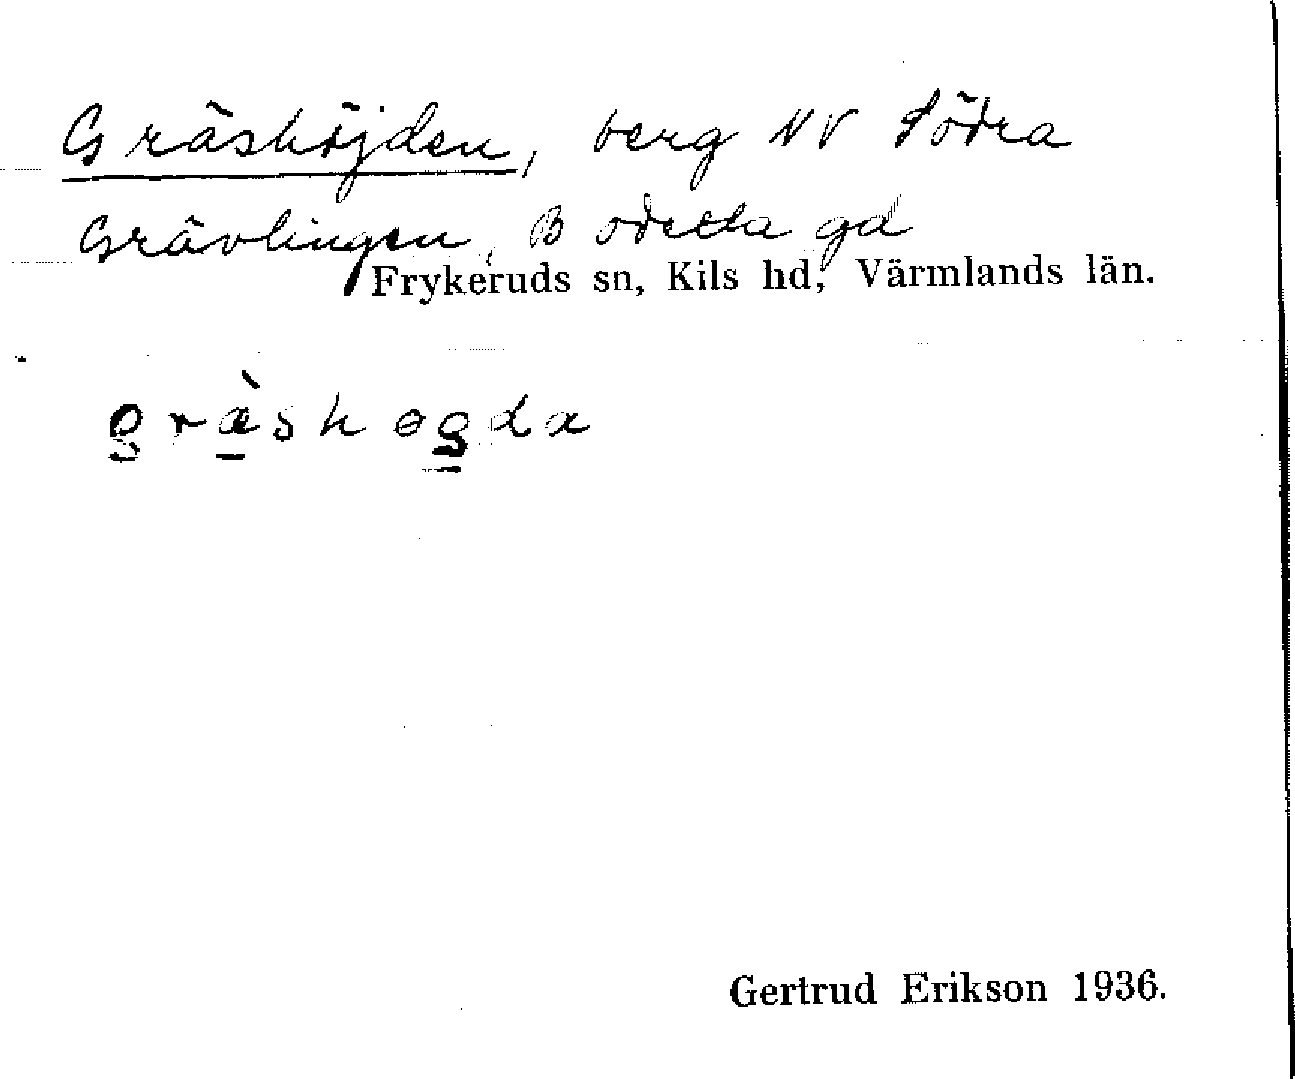 Gräshöjden, berg NV Södra
Grävlingen, gd
Frykeruds sn, Kils hd, Värmlands län.
græ̀shøgda
Gertrud Erikson 1936.